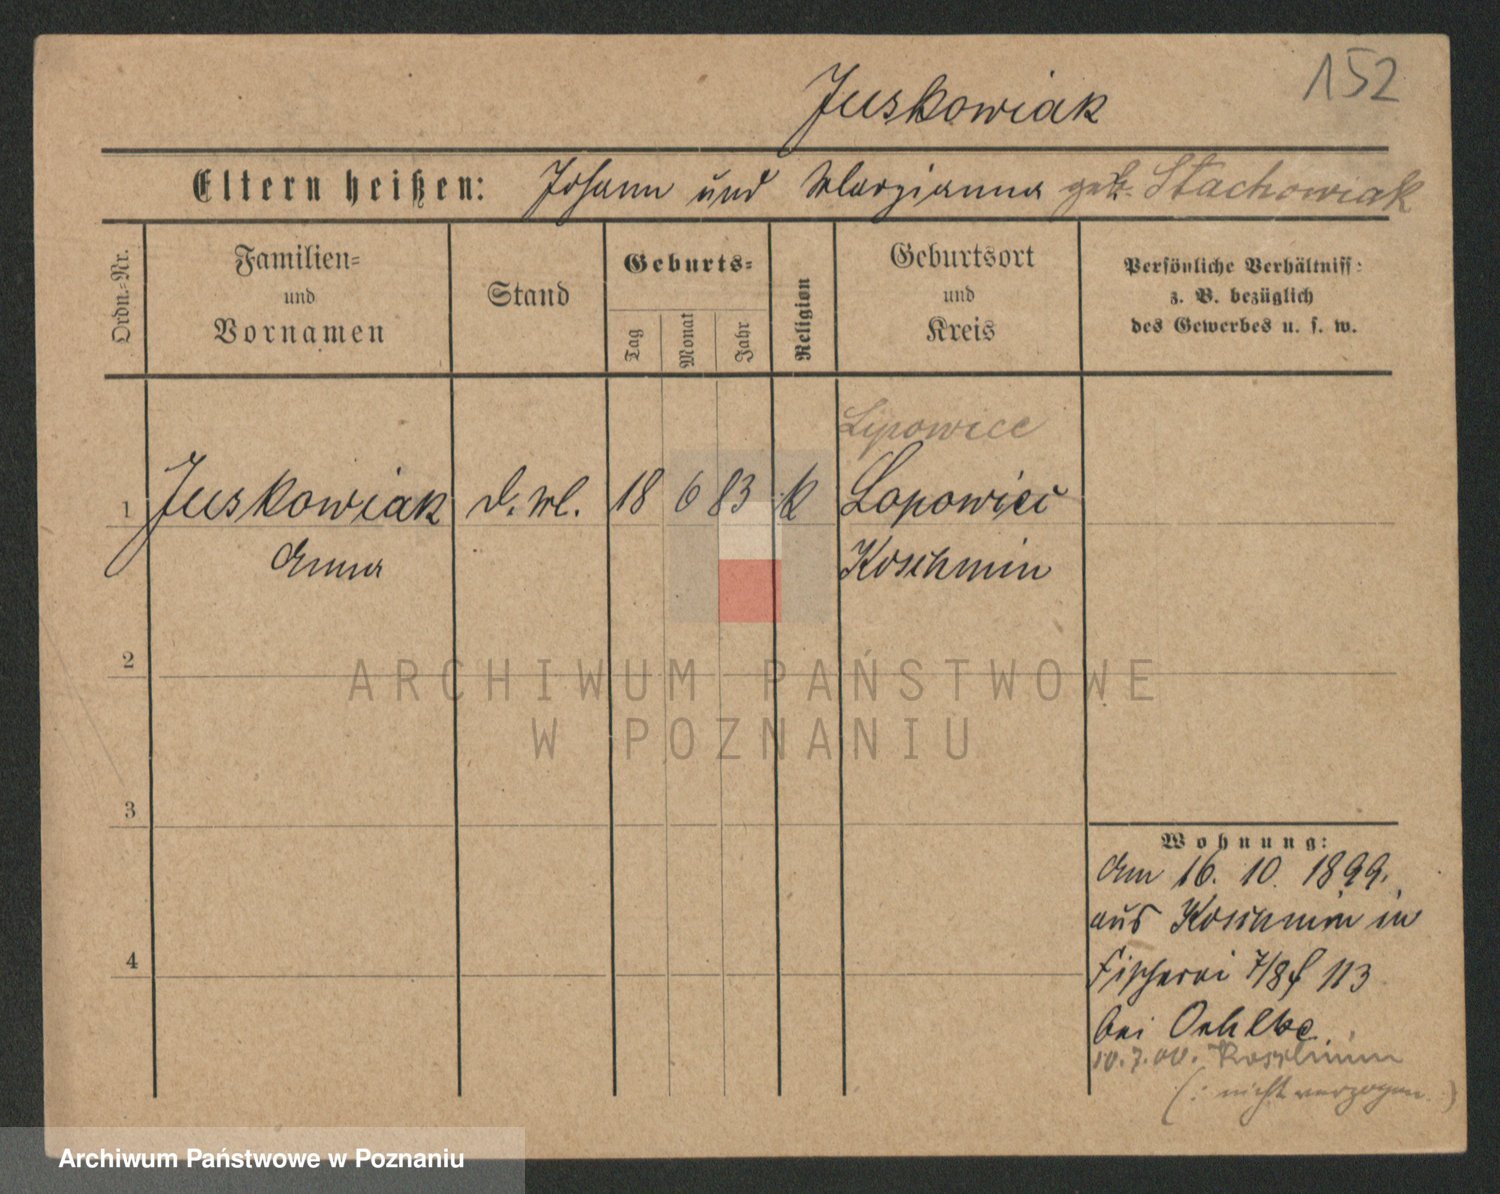 152
Juskowiak
Eltern heißen: Johann und Marzianna geb. Stachowiak
Ordn.-Nr.
Familien-
und
Vornamen
Stand
Geburts-
Tag
Monat
Jahr
Religion
Geburtsort
und
Kreis
Persönliche Verhältniss:
z. B. bezüglich
des Gewerbes u. s. w.
Lipowiec
1 Juskowiak d. 18 6 83 k Lopowiec
Anna Koschmin
2
3
4
Wohnung:
Am 16. 10. 1899.
aus Koschmin in
Fischerei 7/8 113
bei
10.7.00. Koschmin
(: nicht verzogen. :)
ARCHIWUM PAŃSTWOWE
W POZNANIU
Archiwum Państwowe w Poznaniu